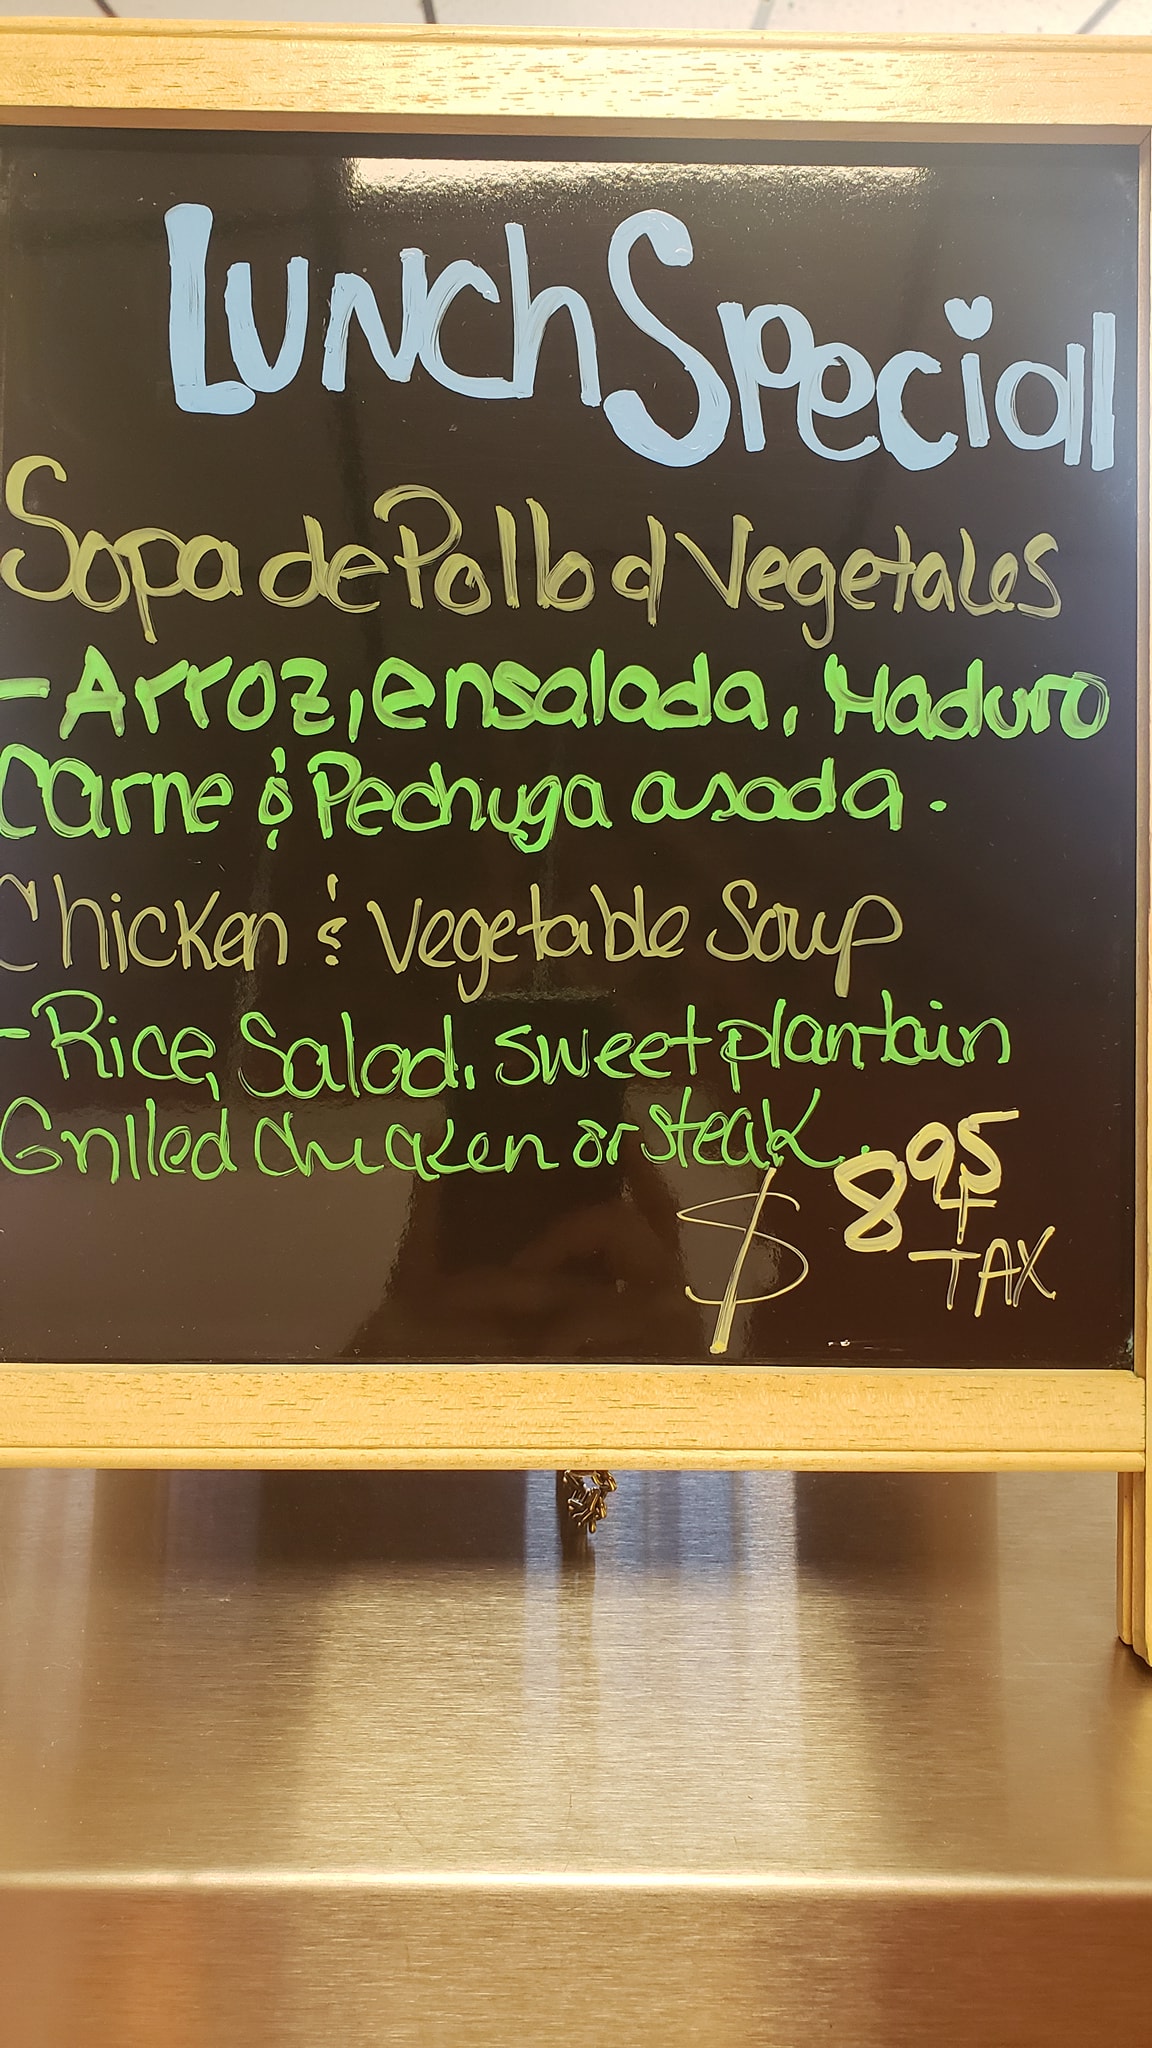 Lunch Special
Sopa de Pollo d Vegetales
- Arroz, ensalada, Maduro
Carne ó Pechuga asada.
Chicken & Vegetable Soup
- Rice, Salad, sweet plantain
Grilled Chicken or steak.
$ 8.95
+
TAX